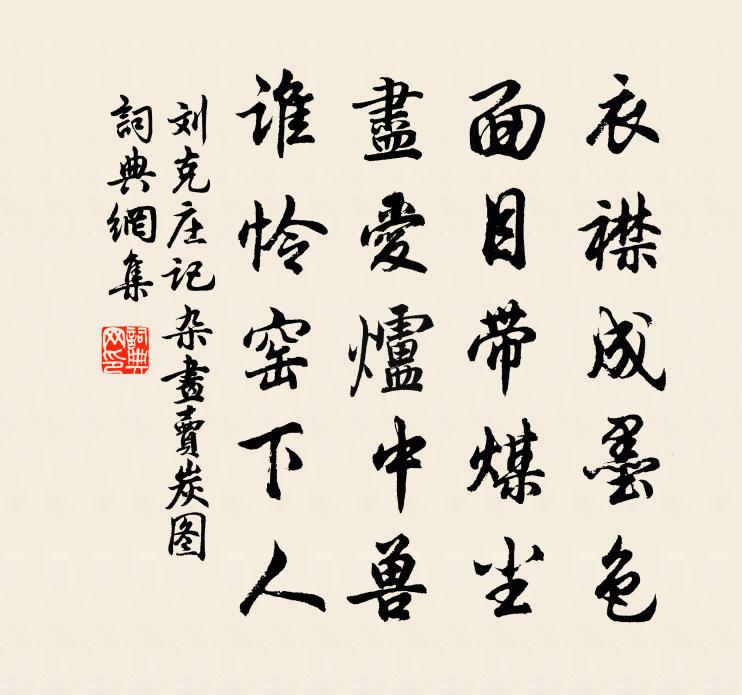 衣襟成墨色
面目带煤尘
盡愛爐中兽
谁怜窑下人
刘克庄记杂畫賣炭图
詞典網集
詞典网印